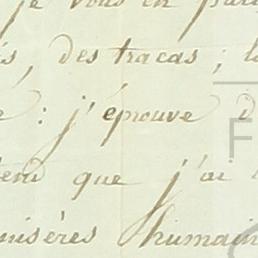 je vous en par
s, des tracas ; l
: j'éprouve d
que j'ai
misères humain